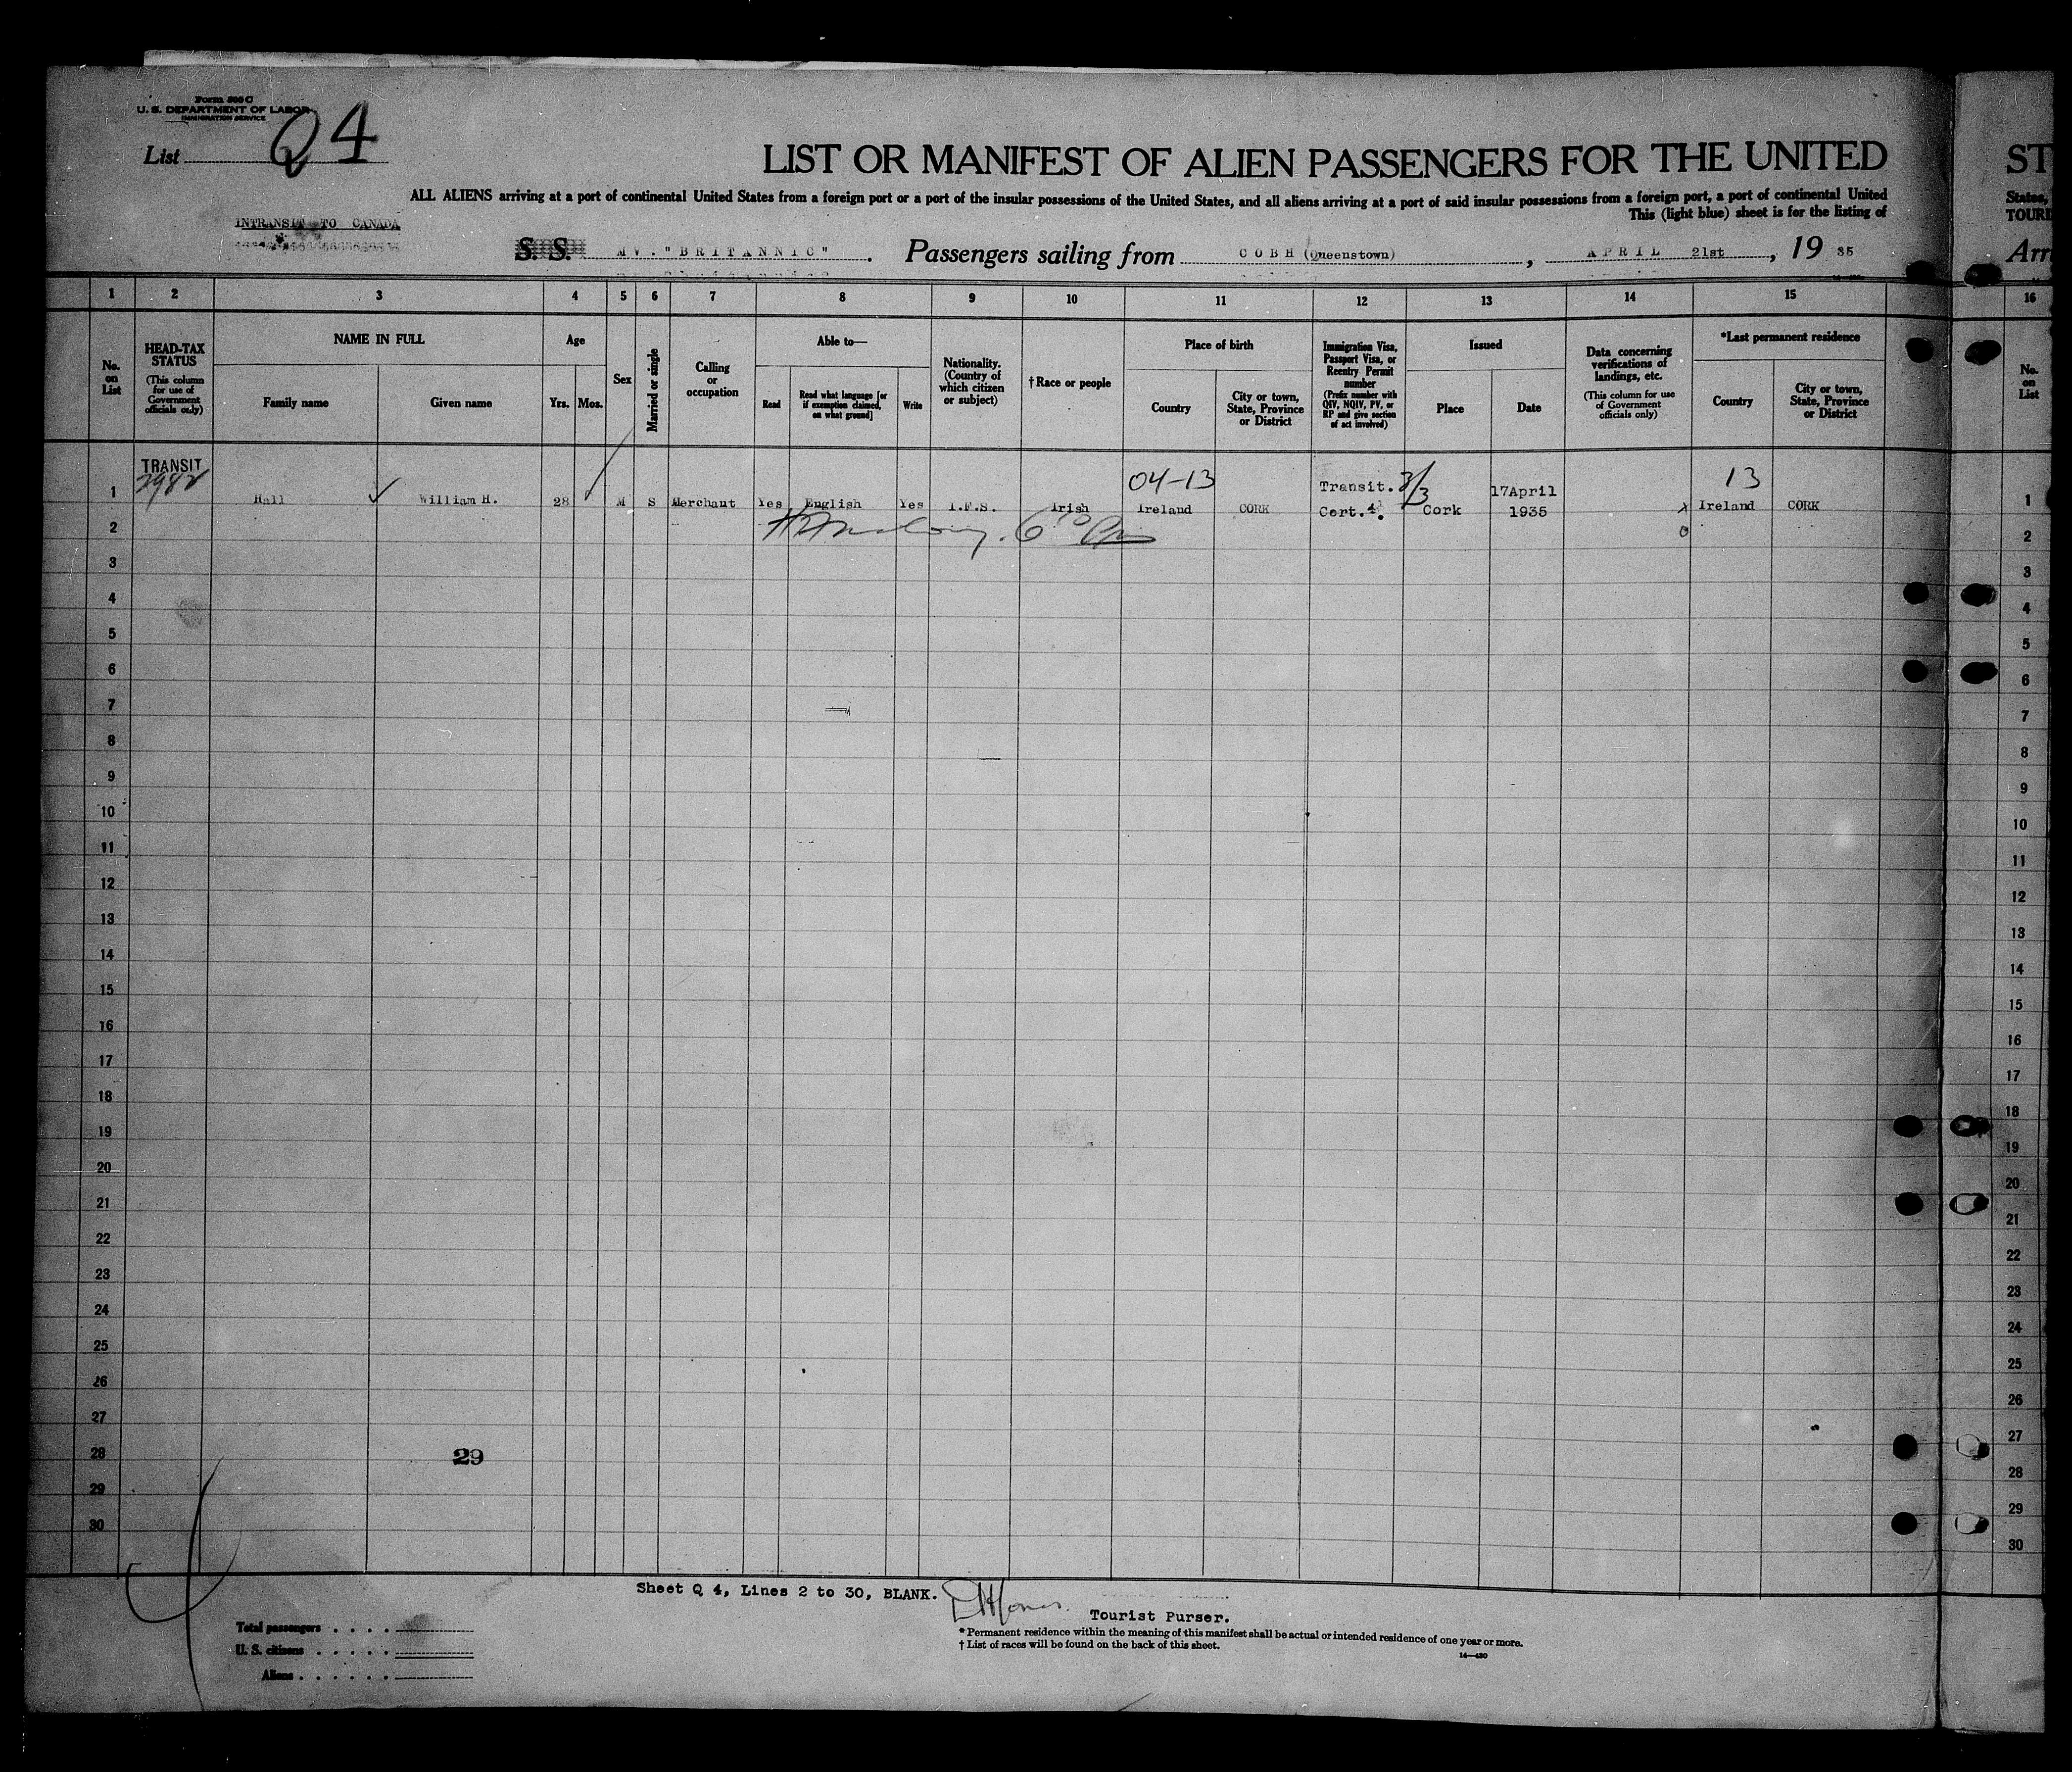 Form 500 C
U. S. DEPARTMENT OF LABOR
IMMIGRATION SERVICE
List Q4
LIST OR MANIFEST OF ALIEN PASSENGERS FOR THE UNITED
ST
ALL ALIENS arriving at a port of continental United States from a foreign port or a port of the insular possessions of the United States, and all aliens arriving at a port of said insular possessions from a foreign port, a port of continental United
States,
This (light blue) sheet is for the listing of
TOURI
INTRANSIT TO CANADA
S. S. MV. "BRITANNIC". Passengers sailing from COBH (Queenstown), APRIL 21st, 19 35
Arri
1 2 3 4 5 6 7 8 9 10 11 12 13 14 15
16
No. on List
HEAD-TAX STATUS
(This column for use of Government officials only)
NAME IN FULL
Family name
Given name
Age
Yrs. Mos.
Sex
Married or single
Calling or occupation
Able to—
Read
Read what language [or if exemption claimed, on what ground]
Write
Nationality. (Country of which citizen or subject)
† Race or people
Place of birth
Country
City or town, State, Province or District
Immigration Visa, Passport Visa, or Reentry Permit number
(Prefix number with QIV, NQIV, PV, or RP and give section of act involved)
Issued
Place
Date
Data concerning verifications of landings, etc.
(This column for use of Government officials only)
*Last permanent residence
Country
City or town, State, Province or District
No. on List
TRANSIT
04-13
Transit. 3/3
17April
13
1 Hall William H. 28 M S Merchant Yes English Yes I.F.S. Irish Ireland CORK Cert.4. Cork 1935 x Ireland CORK 1
2 2
3 3
4 4
5 5
6 6
7 7
8 8
9 9
10 10
11 11
12 12
13 13
14 14
15 15
16 16
17 17
18 18
19 19
20 20
21 21
22 22
23 23
24 24
25 25
26 26
27 27
28 29 28
29 29
30 30
Sheet Q 4, Lines 2 to 30, BLANK.
Tourist Purser.
Total passengers
U. S. citizens
Aliens
* Permanent residence within the meaning of this manifest shall be actual or intended residence of one year or more.
† List of races will be found on the back of this sheet.
14—430